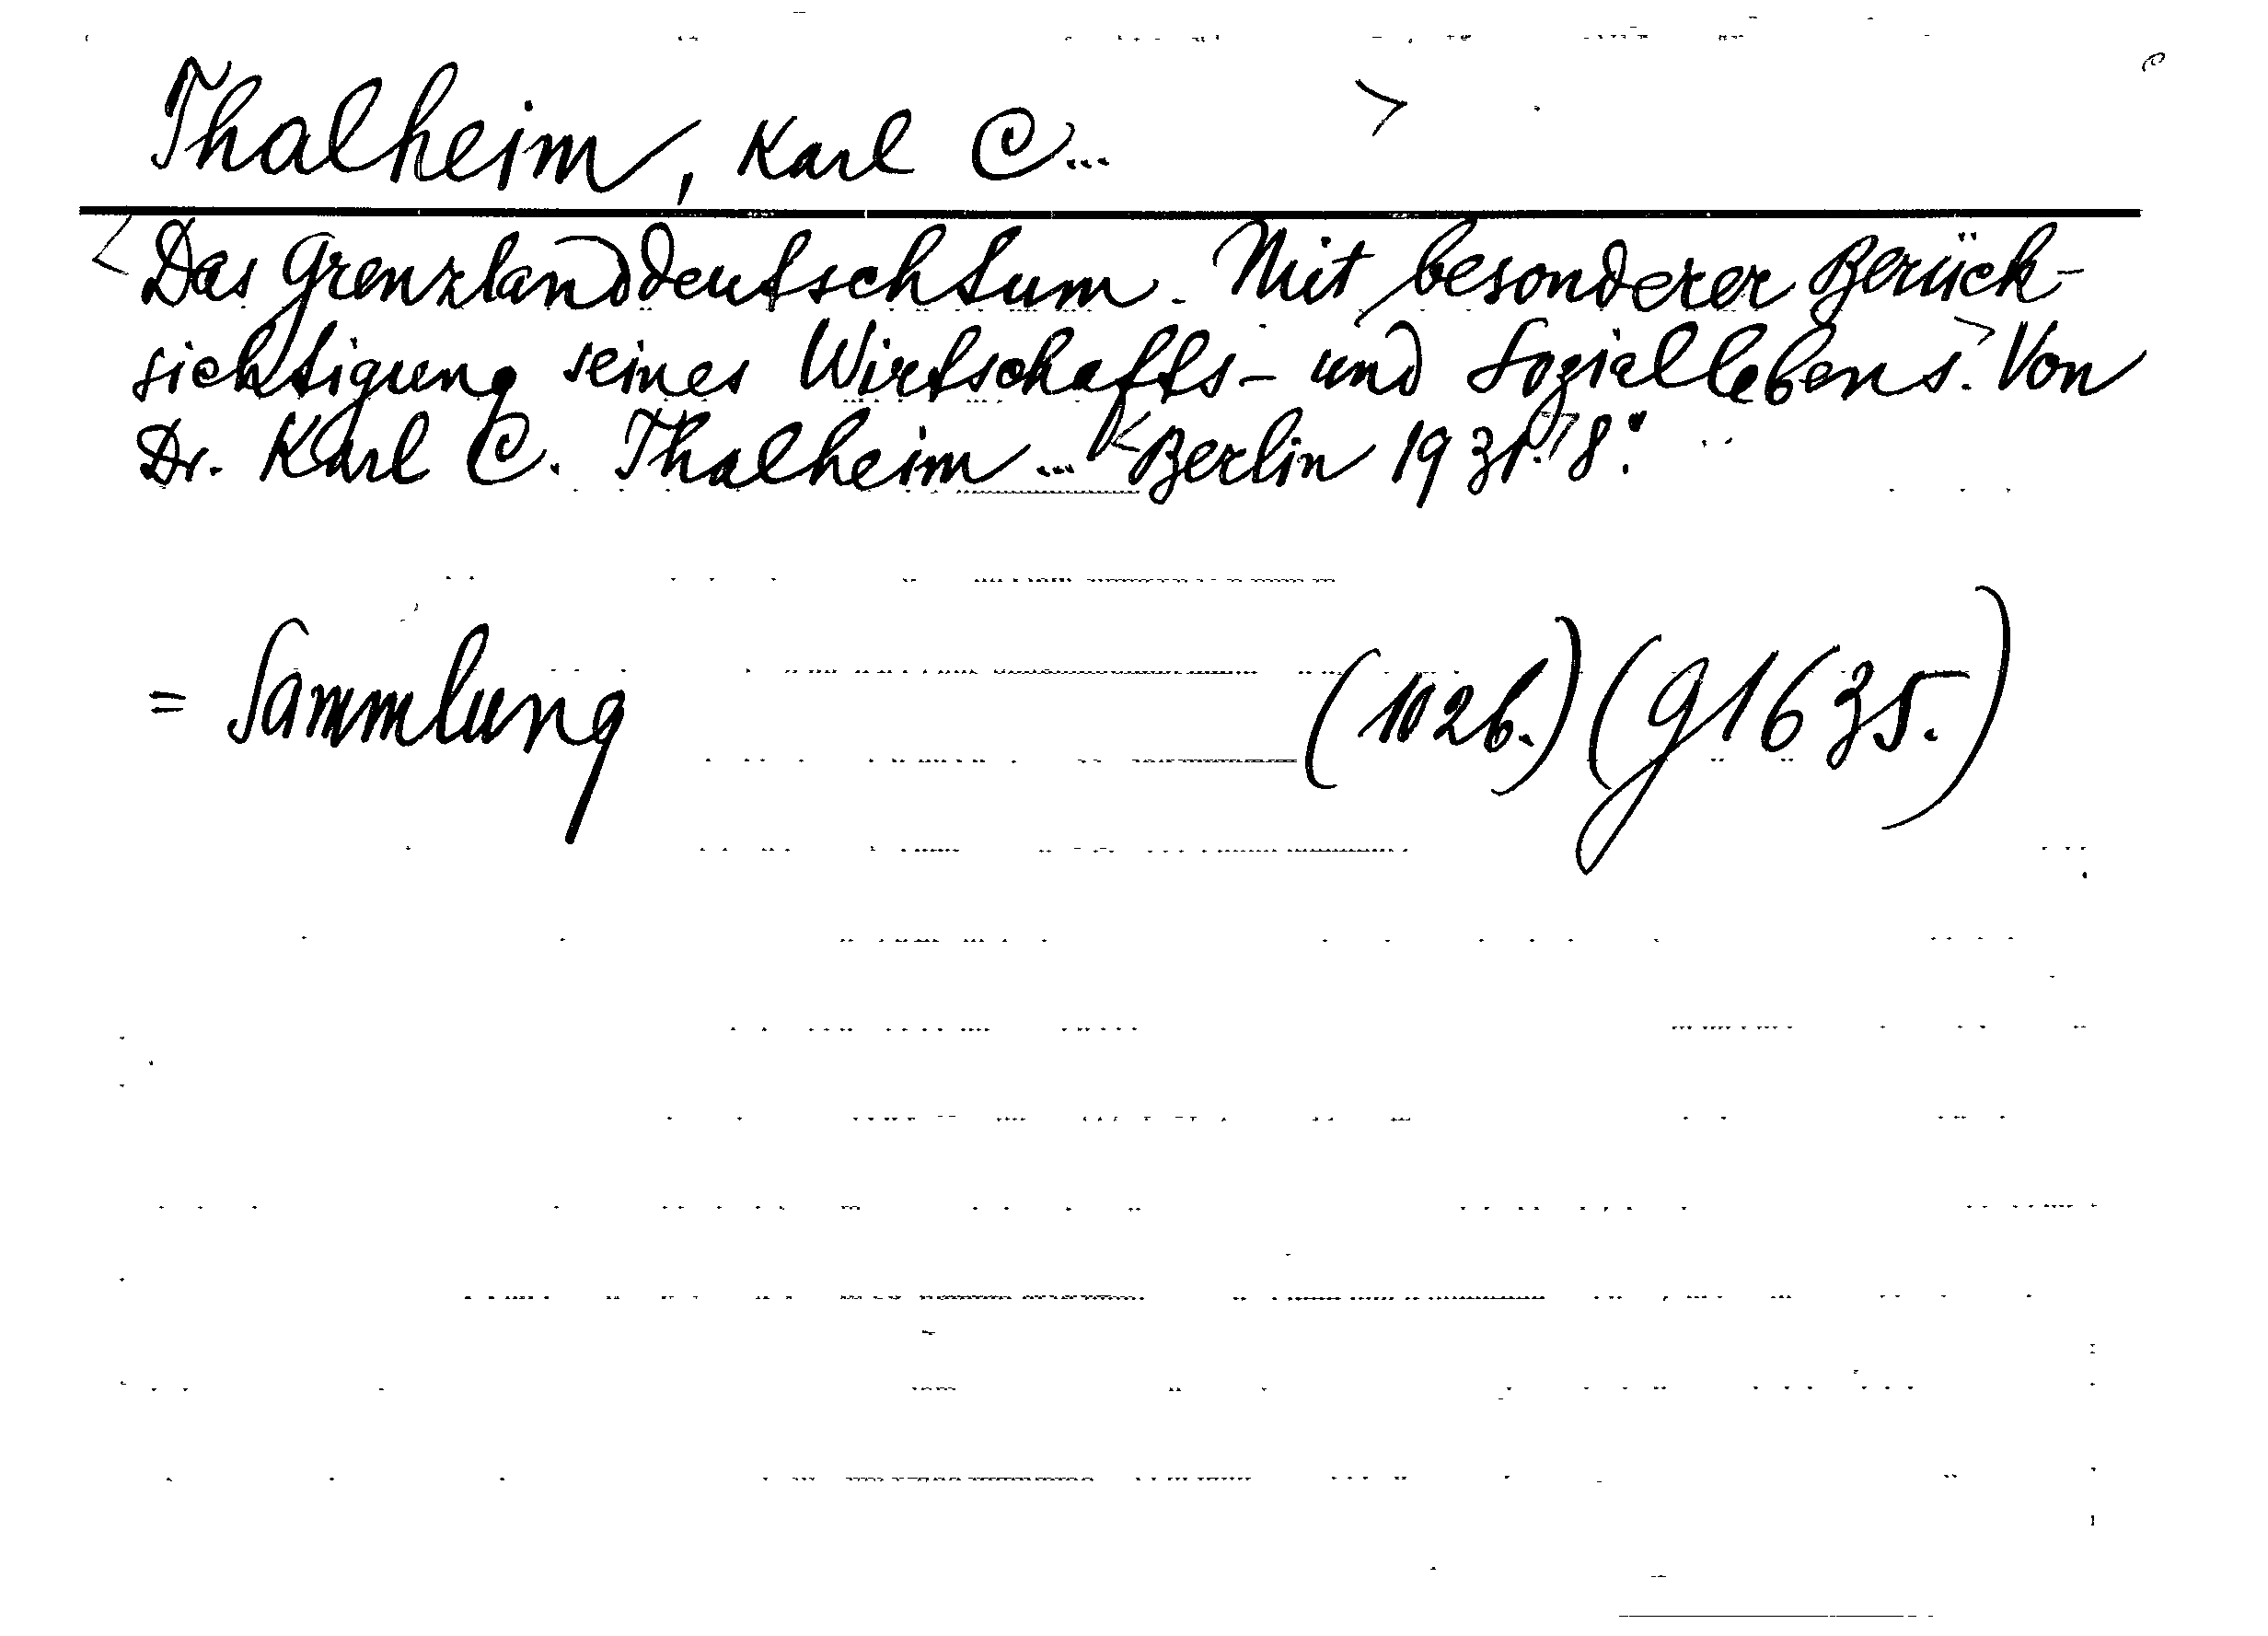 Thalheim, Karl C... >
< Das Grenzlanddeutschtum. Mit besonderer Berück-
sichtigung seines Wirtschafts- und Soziallebens.> Von
Dr. Karl C. Thalheim ... < Berlin 1931.> 8°.
= Sammlung (1026.) (G1635.)